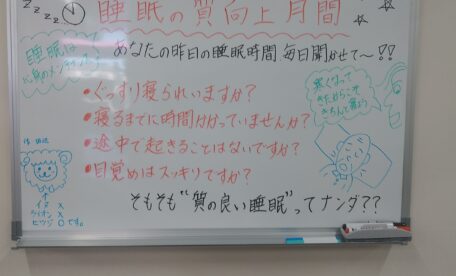 zzzz
睡眠の質向上月間
睡眠は
心身のメンテナンス!
あなたの昨日の睡眠時間 毎日聞かせて〜!!
・ぐっすり寝られいますか?
・寝るまでに時間かかっていませんか?
・途中で起きることはないですか?
・目覚めはスッキリですか?
寒くなって
きたからこそ
きちんと寝よう
イヌ ×
ライオン ×
ヒツジ ○です。
そもそも"質の良い睡眠"ってナンダ??